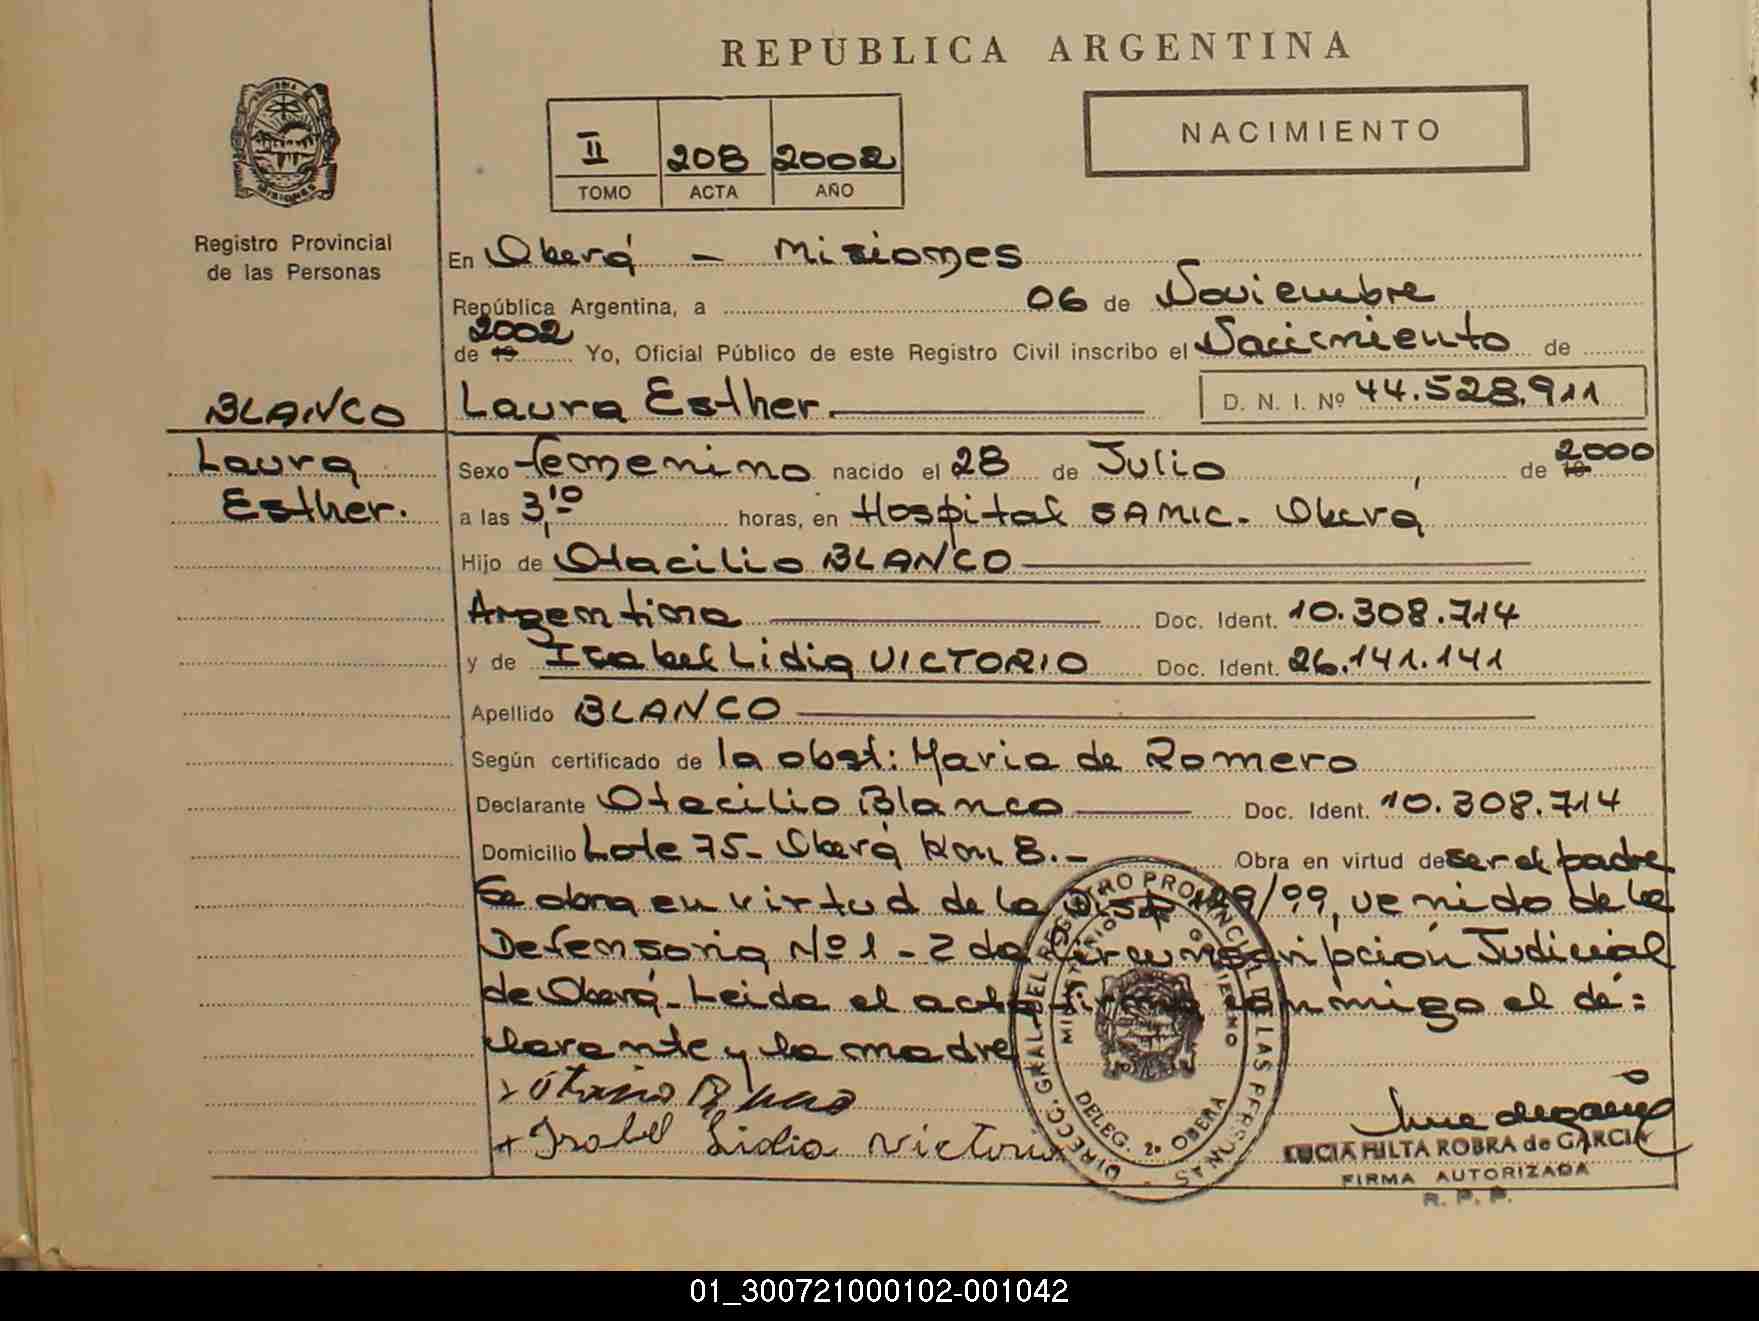 REPUBLICA ARGENTINA
NACIMIENTO
II 208 2002
TOMO ACTA AÑO
MISIONES
Registro Provincial
de las Personas
En Oberá - Misiones
República Argentina, a 06 de Noviembre
2002
de 19 Yo, Oficial Público de este Registro Civil inscribo el Nacimiento de
BLANCO
Laura
Esther.
Laura Esther D. N. I. Nº 44.528.911
Sexo femenino nacido el 28 de Julio de 19 2000
a las 3,10 horas, en Hospital SAMIC - Oberá
Hijo de Otacilio BLANCO
Argentina Doc. Ident. 10.308.714
y de Isabel Lidia VICTORIO Doc. Ident. 26.141.141
Apellido BLANCO
Según certificado de la obst: Maria de Romero
Declarante Otacilio Blanco Doc. Ident. 10.308.714
Domicilio Lote 75 - Oberá Km 8.- Obra en virtud de ser el padre
Se obra en virtud de la Disp 129/99, venido de la
Defensoria Nº 1 - 2 da Circunscripción Judicial
de Oberá - Leida el acta firma conmigo el de:
clarante y la madre
Isabel Lidia Victorio
DIRECC. GRAL. DEL REGISTRO PROVINCIAL DE LAS PERSONAS
MINISTERIO DE GOBIERNO
DELEG. 2º OBERA
LUCIA HILTA ROBRA de GARCIA
FIRMA AUTORIZADA
R. P. P.
01_300721000102-001042